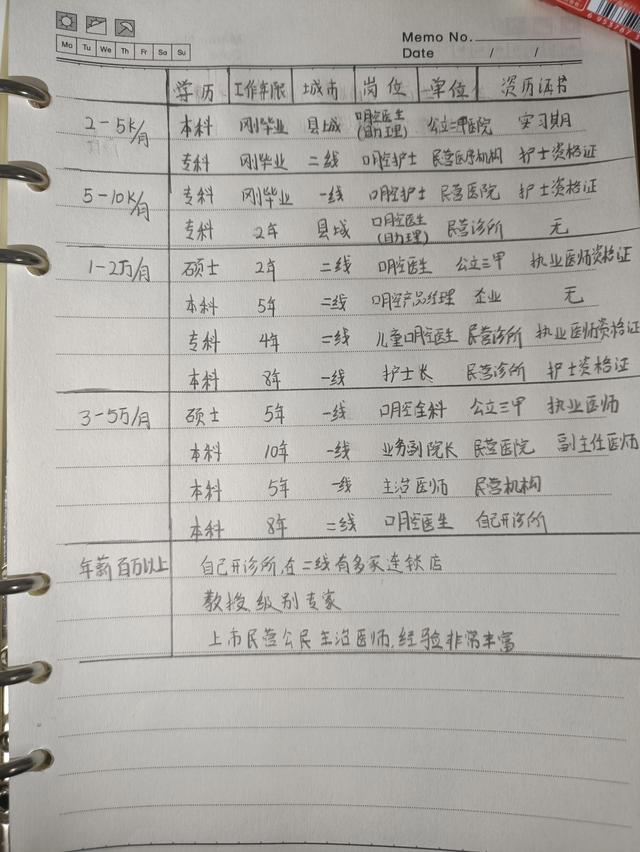 Memo No.
Mo Tu We Th Fr Sa Su
Date / /
学历 工作年限 城市 岗位 单位 资历证书
2-5k/月 本科 刚毕业 县城 口腔医生(助理) 公立三甲医院 实习期
专科 刚毕业 二线 口腔护士 民营医疗机构 护士资格证
5-10k/月 专科 刚毕业 一线 口腔护士 民营医院 护士资格证
专科 2年 县城 口腔医生(助理) 民营诊所 无
1-2万/月 硕士 2年 二线 口腔医生 公立三甲 执业医师资格证
本科 5年 二线 口腔产品经理 企业 无
专科 4年 二线 儿童口腔医生 民营诊所 执业医师资格证
本科 8年 一线 护士长 民营诊所 护士资格证
3-5万/月 硕士 5年 一线 口腔全科 公立三甲 执业医师
本科 10年 一线 业务副院长 民营医院 副主任医师
本科 5年 一线 主治医师 民营机构
本科 8年 二线 口腔医生 自己开诊所
年薪百万以上 自己开诊所,在二线有多家连锁店
教授级别专家
上市民营公民主治医师,经验非常丰富